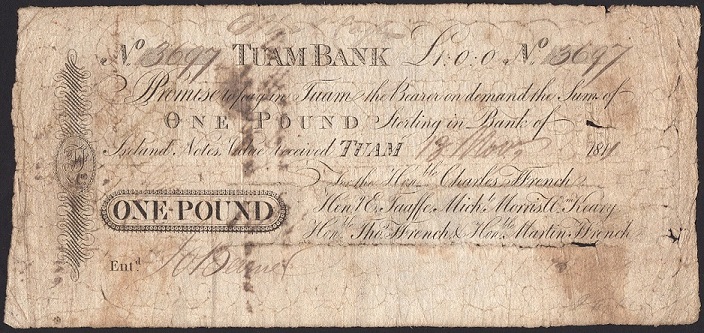 No 13697 TUAM BANK L1:0:0 No 13697
I Promise to pay in Tuam the Bearer on demand the Sum of
ONE POUND Sterling in Bank of
Ireland Notes, Value received TUAM 18 Novr 1811
For the Honble Charles Ffrench
ONE-POUND
Henry E. Taaffe, Michl Morris, Wm Keary
Honble Thos Ffrench & Honble Martin Ffrench
Entd